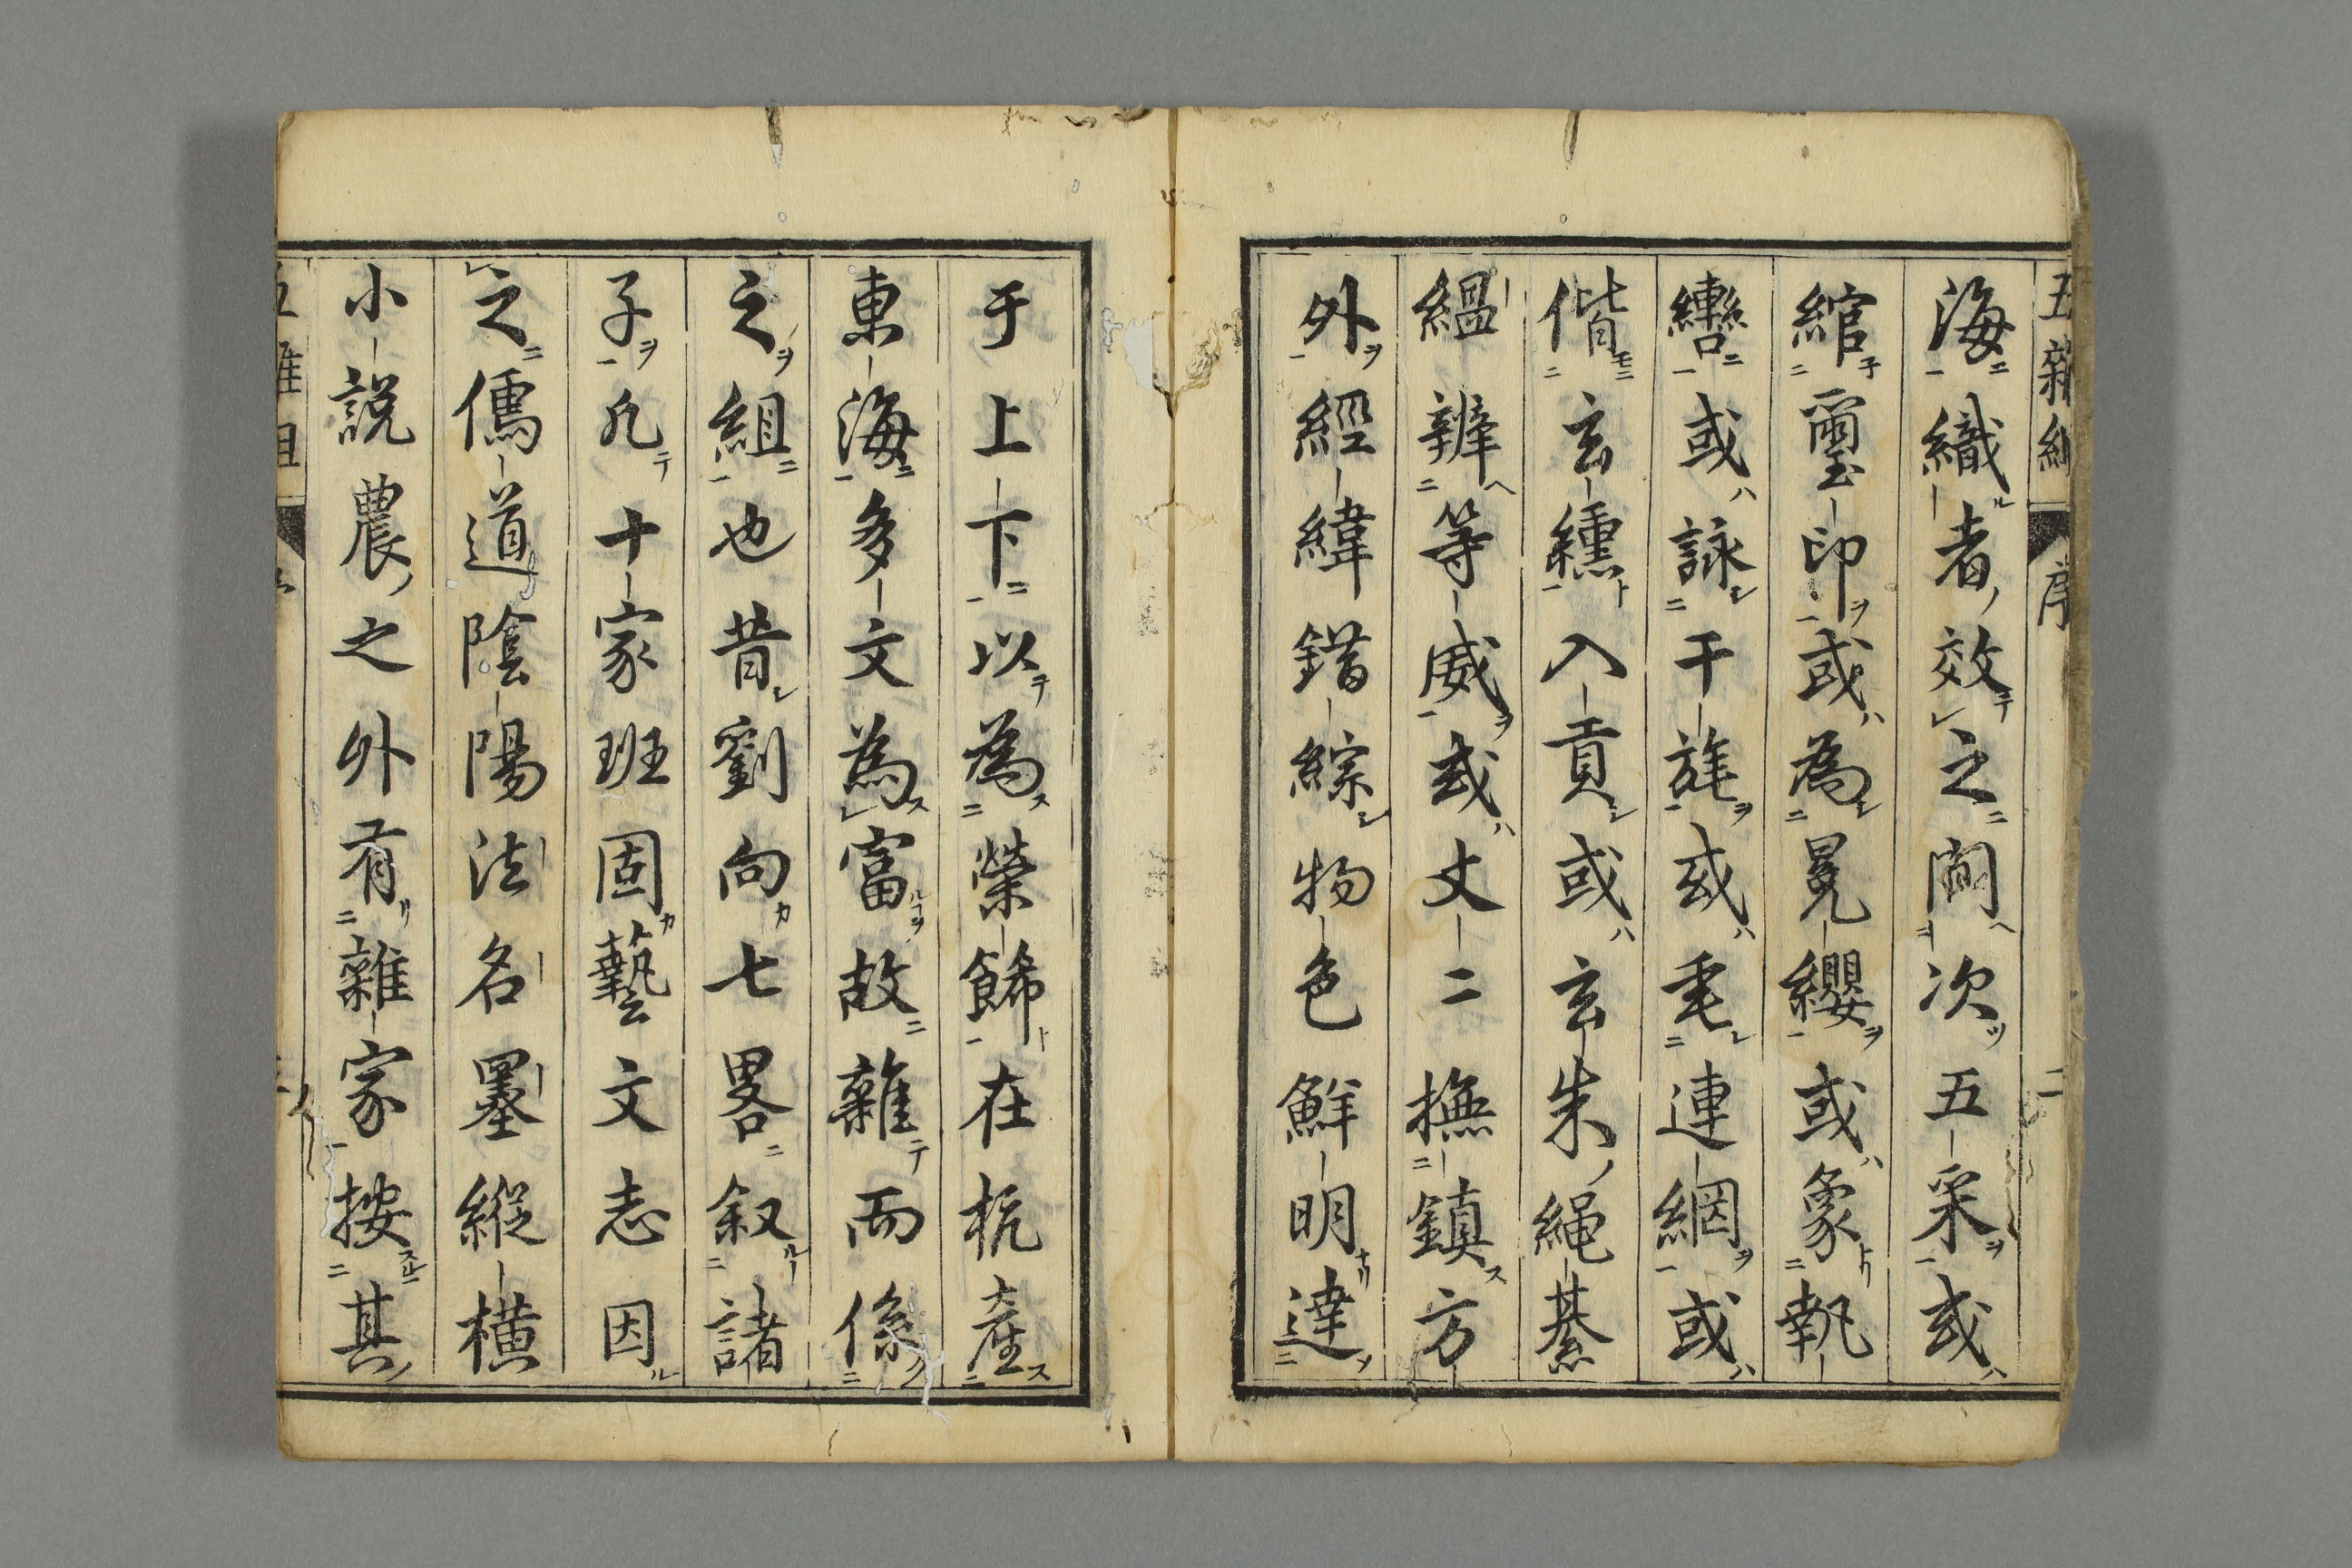 五雜組 序 二
海織者效之間次五采或
綰璽印或為冕纓或象執
轡或詠干旄或垂連網或
偕玄纁入貢或玄朱繩綦
縕辨等威或丈二撫鎮方
外經緯錯綜物色鮮明達
于上下以為榮餙在杭產
東海多文為富故雜而係
之組也昔劉向七畧叙諸
子凡十家班固藝文志因
之儒道陰陽法名墨縱橫
小說農之外有雜家按其